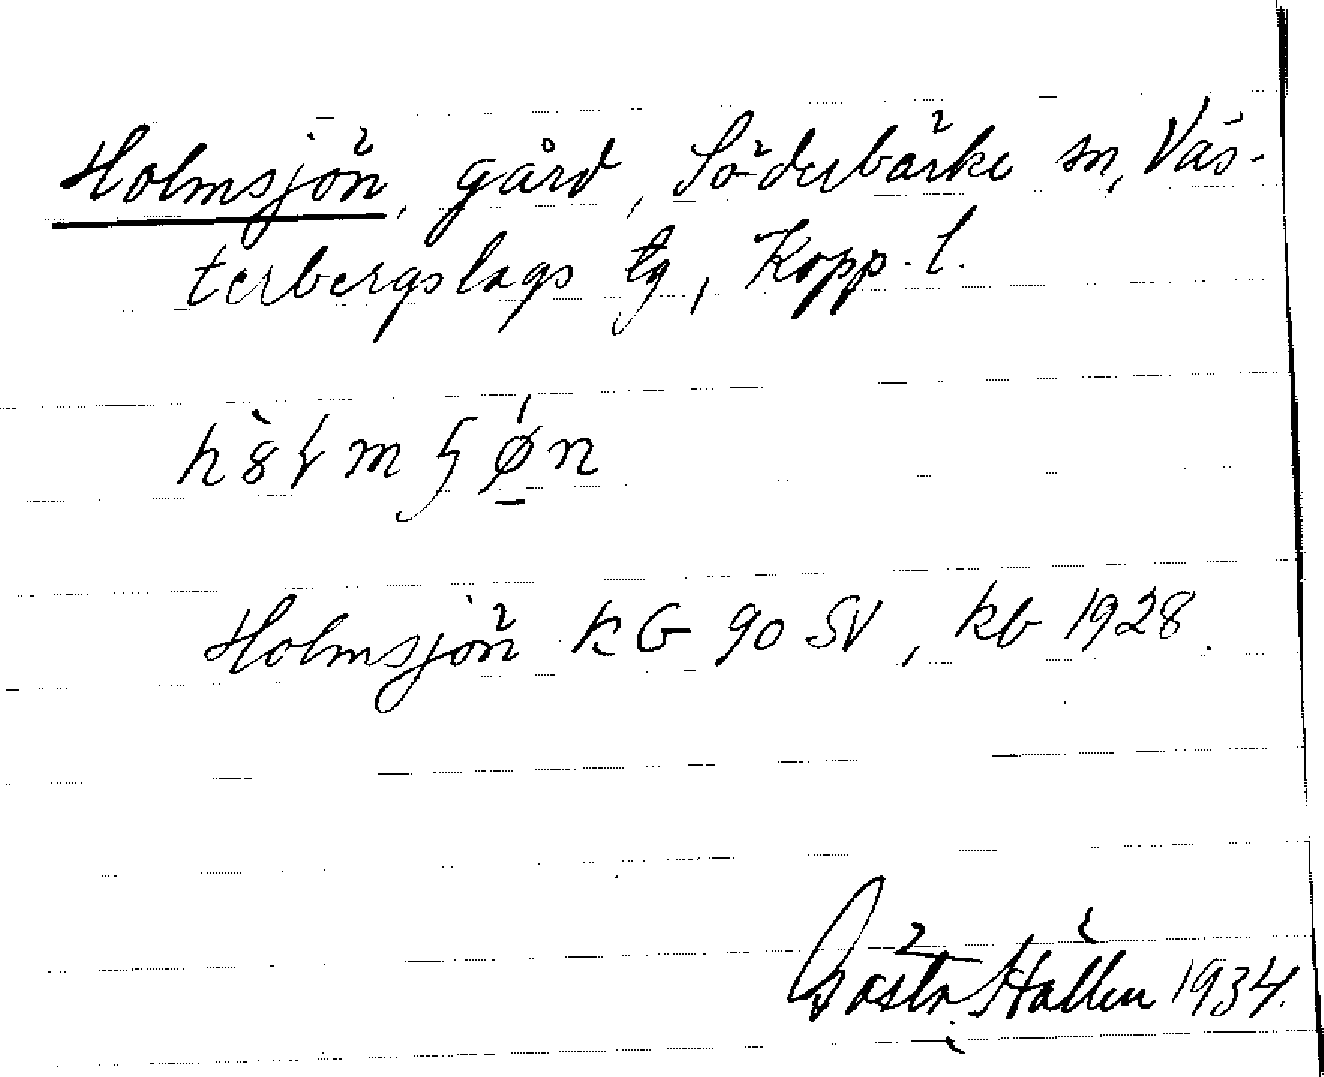 Holmsjön, gård, Söderbärke sn, Väs-
terbergslags tg, Kopp. l.
Holmsjön KG 90 SV, kb 1928.
Gösta Hallen 1934.